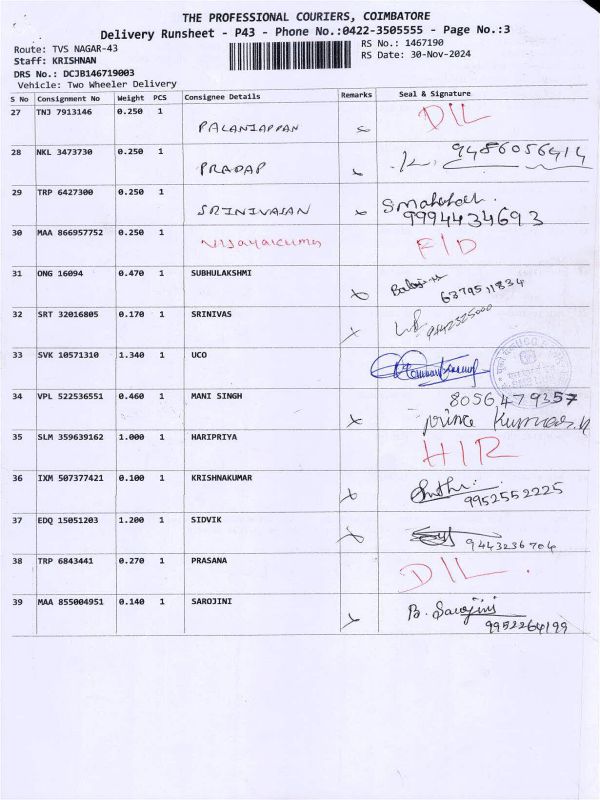 THE PROFESSIONAL COURIERS, COIMBATORE
Delivery Runsheet - P43 - Phone No.:0422-3505555 - Page No.:3
Route: TVS NAGAR-43 RS No.: 1467190
Staff: KRISHNAN RS Date: 30-Nov-2024
DRS No.: DCJB146719003
Vehicle: Two Wheeler Delivery
S No Consignment No Weight PCS Consignee Details Remarks Seal & Signature
27 TNJ 7913146 0.250 1 PALANIAPPAN DIL
28 NKL 3473730 0.250 1 PRADAP 9486056414
29 TRP 6427300 0.250 1 SRINIVASAN
9994434693
30 MAA 866957752 0.250 1 Vijayakumar F/D
31 ONG 16094 0.470 1 SUBHULAKSHMI 6379511834
32 SRT 32016805 0.170 1 SRINIVAS 9842525000
33 SVK 10571310 1.340 1 UCO
34 VPL 522536551 0.460 1 MANI SINGH 8056479357
prince Kumar
35 SLM 359639162 1.000 1 HARIPRIYA HIR
36 IXM 507377421 0.100 1 KRISHNAKUMAR
9952552225
37 EDQ 15051203 1.200 1 SIDVIK 9443236704
38 TRP 6843441 0.270 1 PRASANA DIL.
39 MAA 855004951 0.140 1 SAROJINI B. Sarojini
9952264199